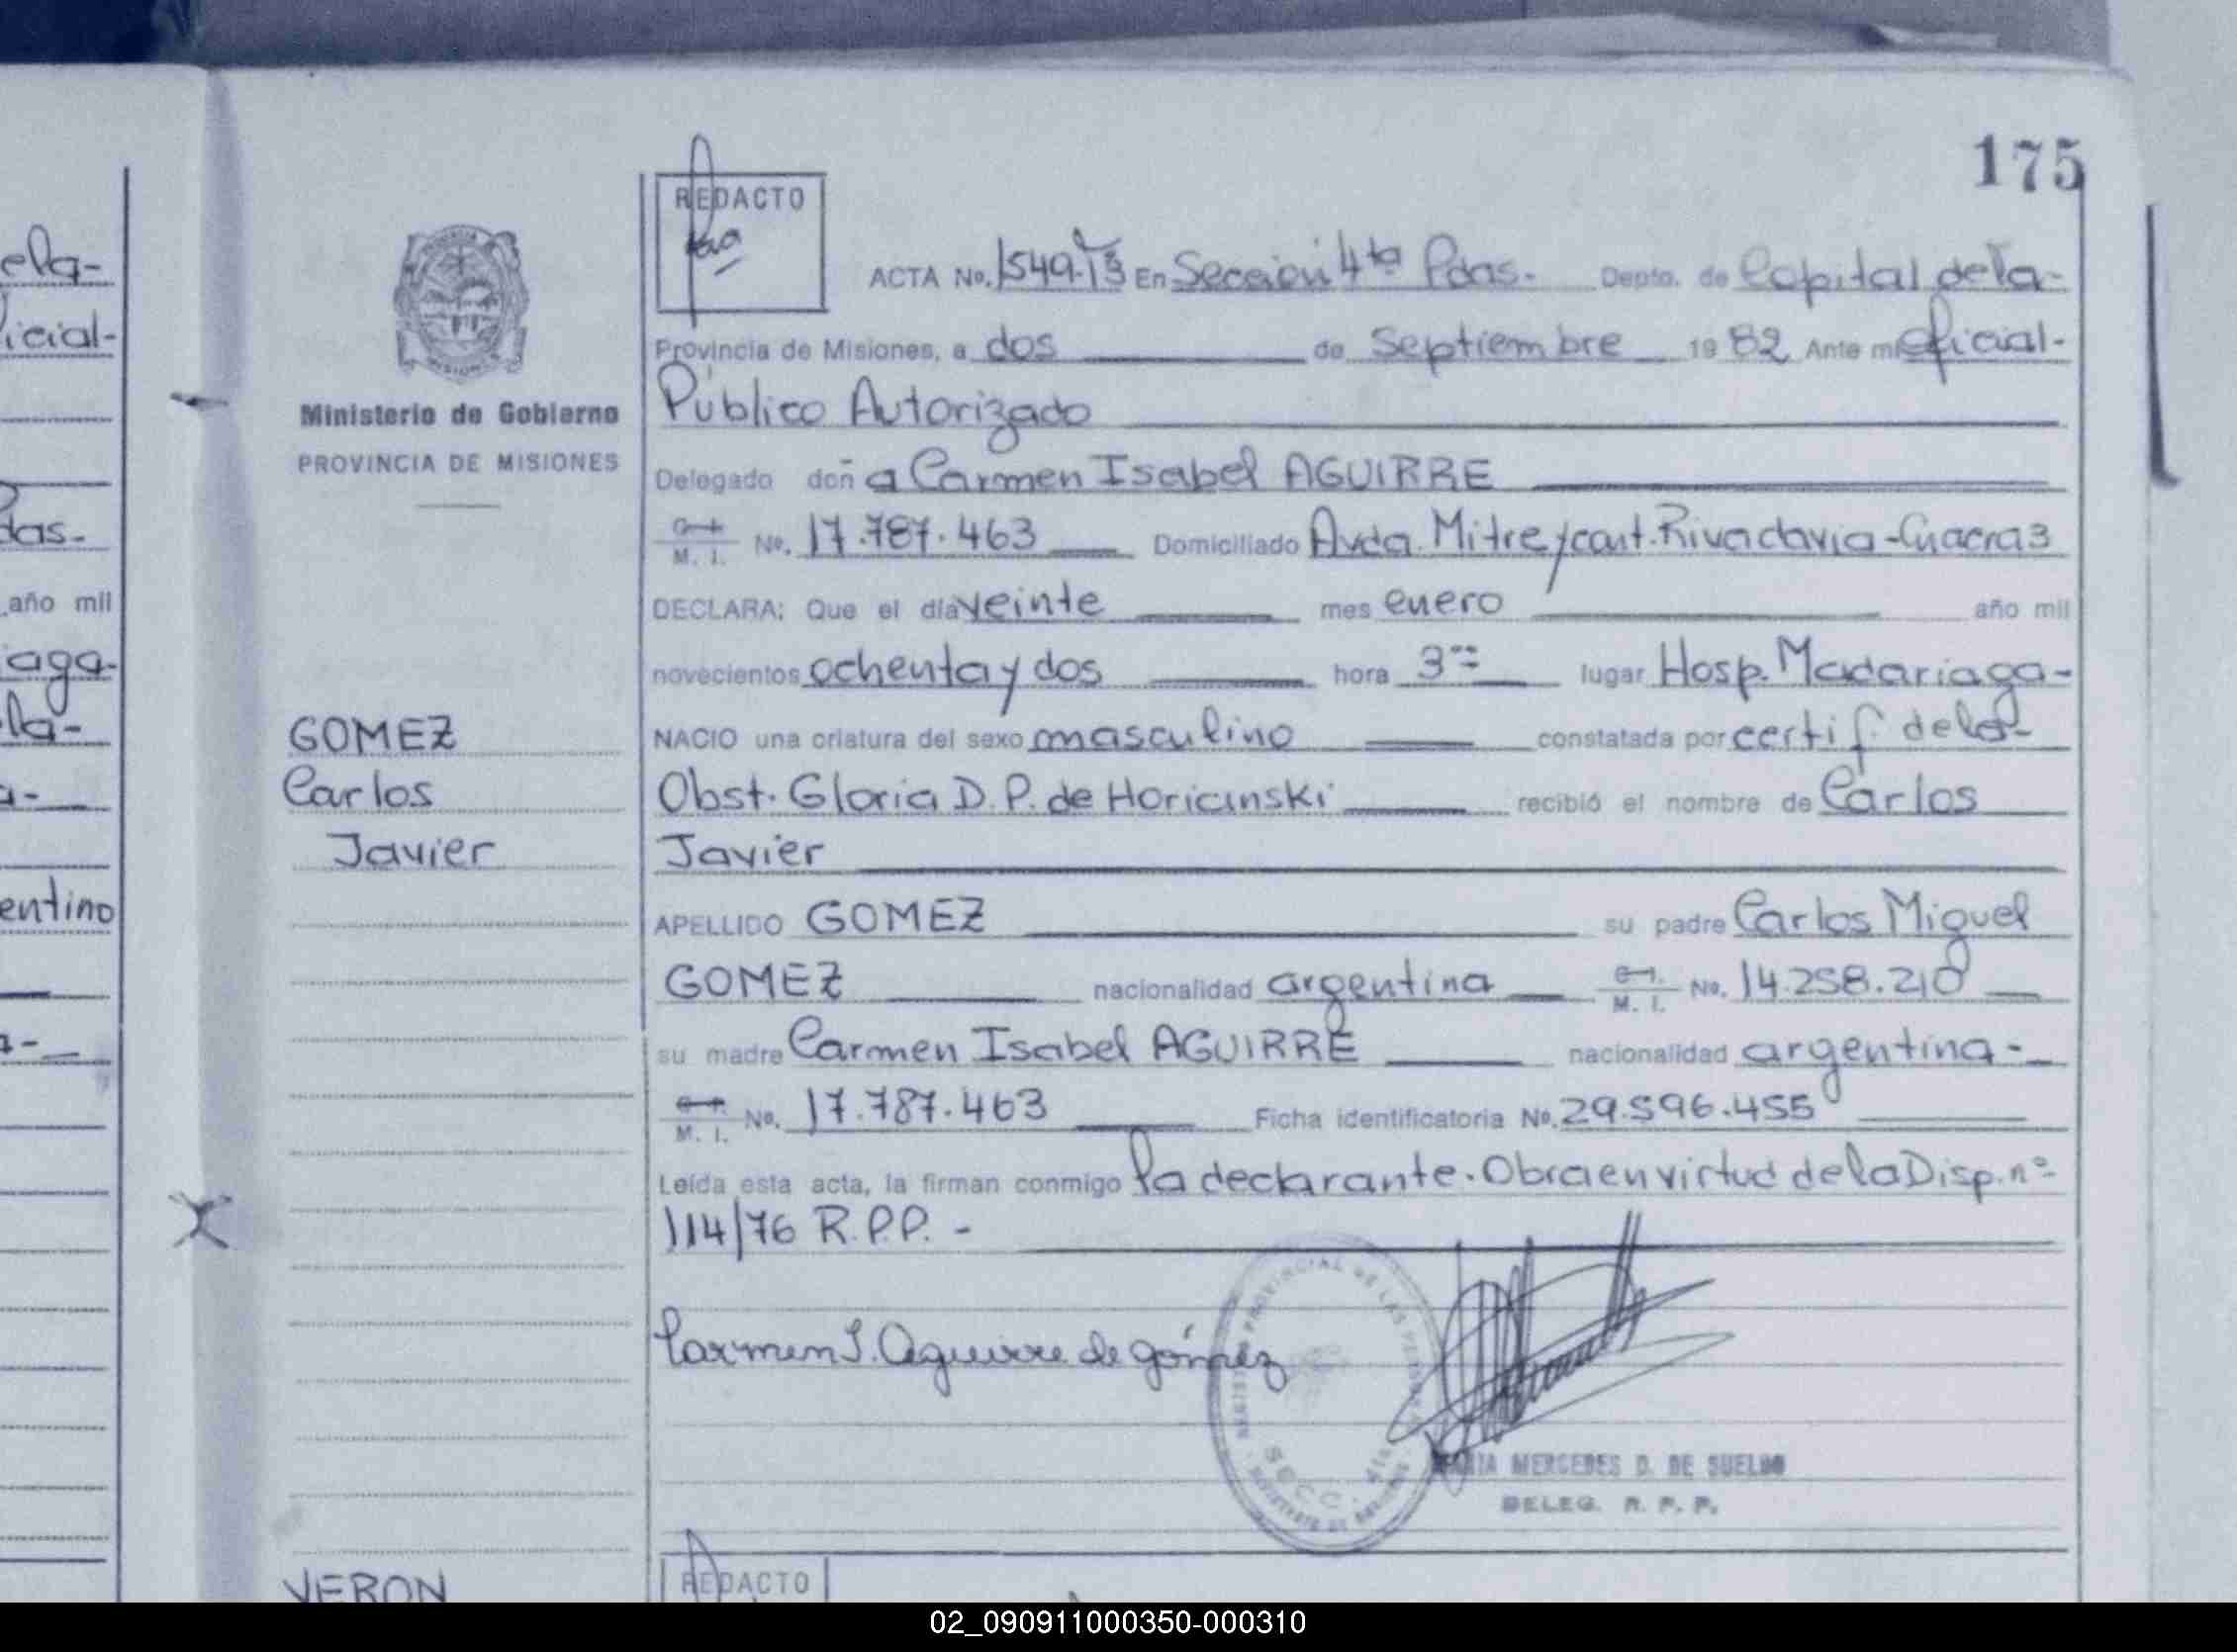 175
REDACTO
ACTA No. 1549-T3 En Sección 4ta Pdas. Depto. de Capital de la-
Provincia de Misiones, a dos de Septiembre 1982 Ante mi Oficial-
Público Autorizado
Ministerio de Gobierno
PROVINCIA DE MISIONES
Delegado doña Carmen Isabel AGUIRRE
M. I. No. 17.787.463 Domiciliado Avda. Mitre y cont. Rivadavia-Chacra 3
DECLARA: Que el día veinte mes enero año mil
novecientos ochenta y dos hora 3 lugar Hosp. Madariaga-
GOMEZ
Carlos
Javier
NACIO una criatura del sexo masculino constatada por certif. de la
Obst. Gloria D. P. de Horicinski recibió el nombre de Carlos
Javier
APELLIDO GOMEZ su padre Carlos Miguel
GOMEZ nacionalidad argentina M. I. No. 14.258.210
su madre Carmen Isabel AGUIRRE nacionalidad argentina-
M. I. No. 17.787.463 Ficha identificatoria No. 29.596.455
Leída esta acta, la firman conmigo la declarante. Obra en virtud de la Disp. nº
114/76 R.P.P. -
Carmen I. Aguirre de Gómez
REGISTRO PROVINCIAL DE LAS
SECC. 4ta
MERCEDES D. DE SUELDO
DELEG. R. P. P.
VERON
REDACTO
ela-
icial-
das-
año mil
iaga-
la-
a-
entino
02_090911000350-000310